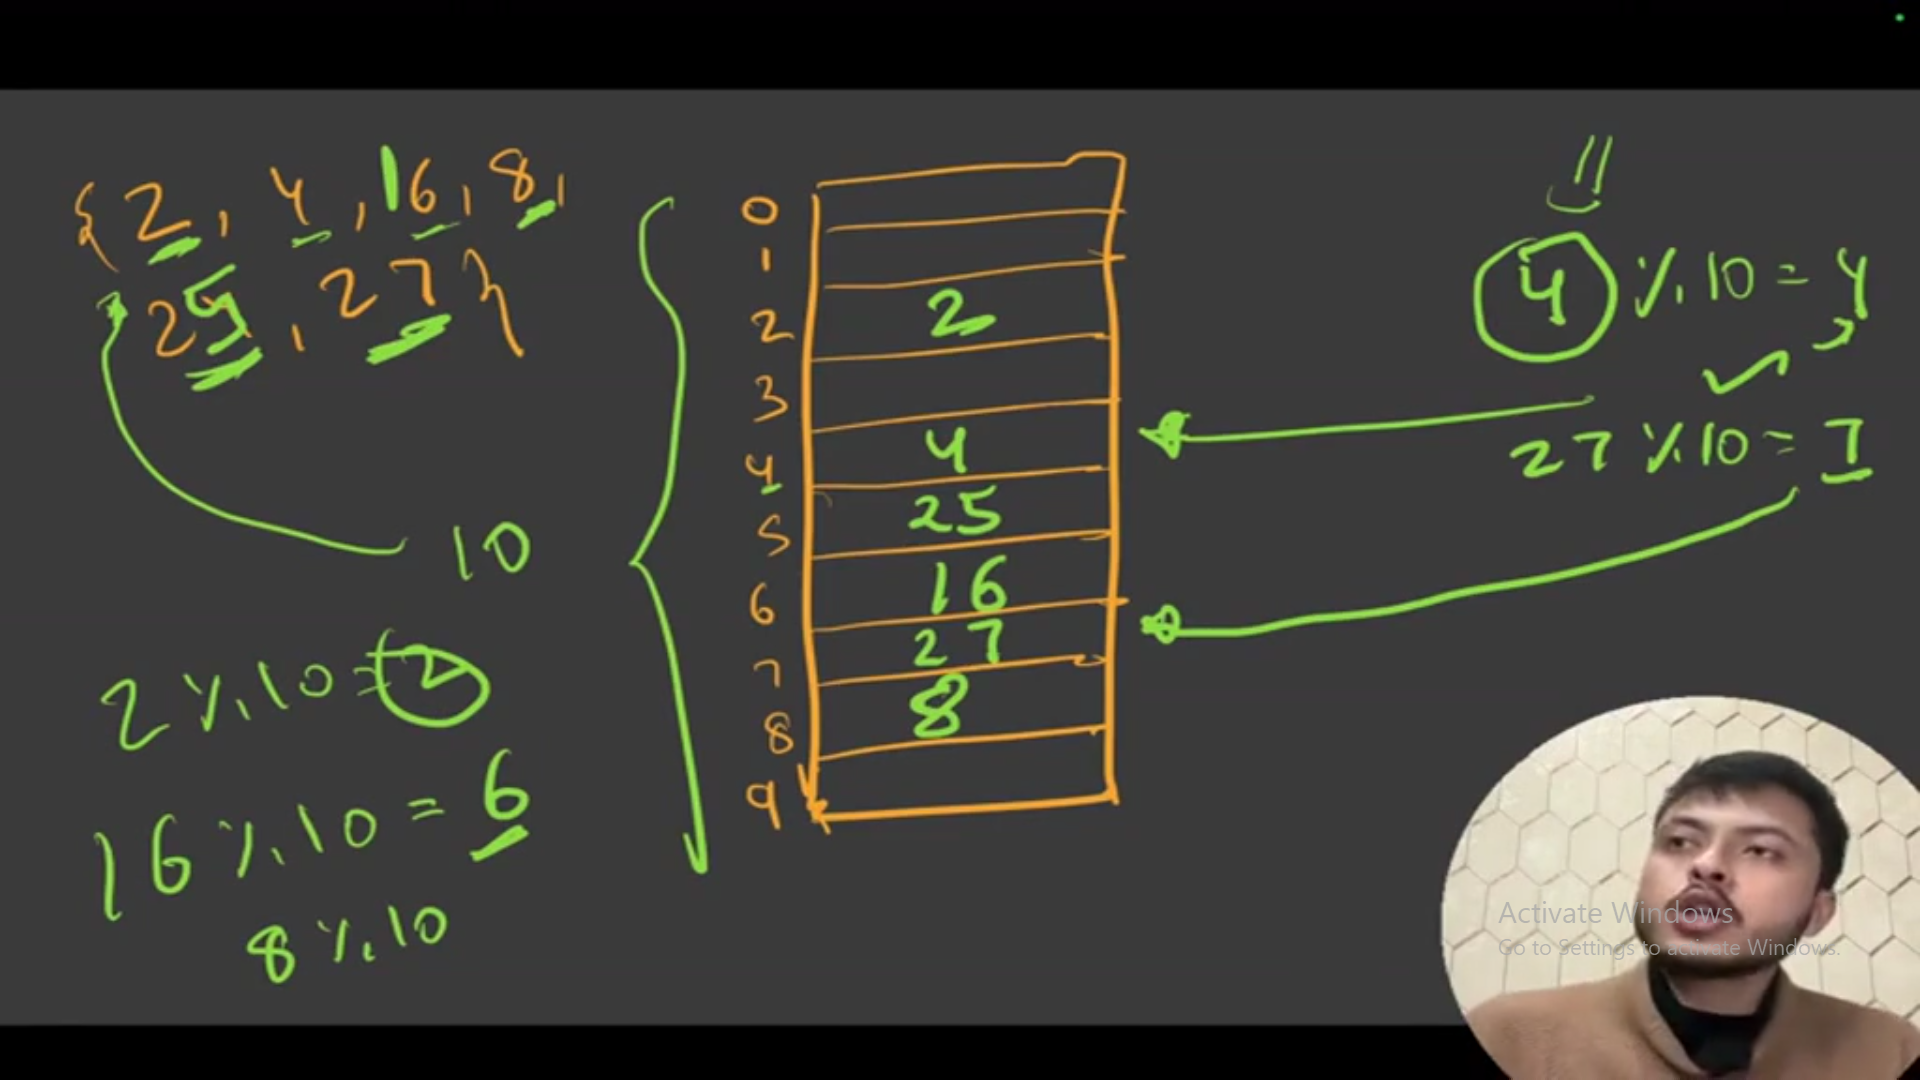 {2, 4, 16, 8,
25, 27}
10
2 % 10 = 2
16 % 10 = 6
8 % 10
0
1
2 2
3
4 4
5 25
6 16
7 27
8 8
9
4 % 10 = 4
27 % 10 = 7
Activate Windows
Go to Settings to activate Windows.